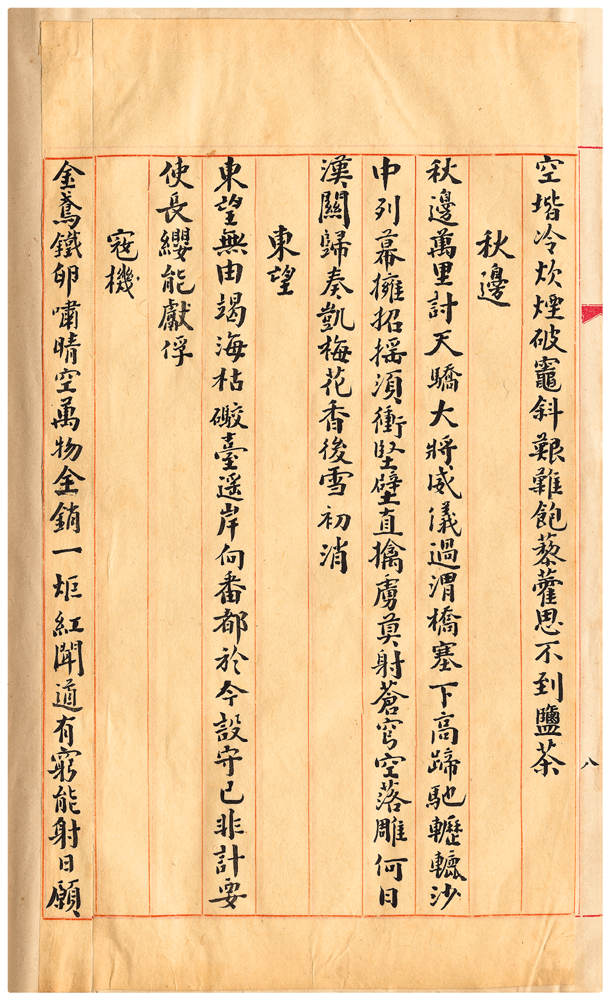 八
空堦冷炊煙破竈斜艱難飽藜藿思不到鹽茶
秋邊
秋邊萬里討天驕大將威儀過渭橋塞下高蹄馳轣轆沙
中列幕擁招搖須衝堅壁直擒虜莫射蒼穹空落雕何日
漢關歸奏凱梅花香後雪初消
東望
東望無由竭海枯礮臺遥岸向番都於今設守已非計要
使長纓能獻俘
寇機
金鳶鐵卵嘯晴空萬物全銷一炬紅聞道有窮能射日願